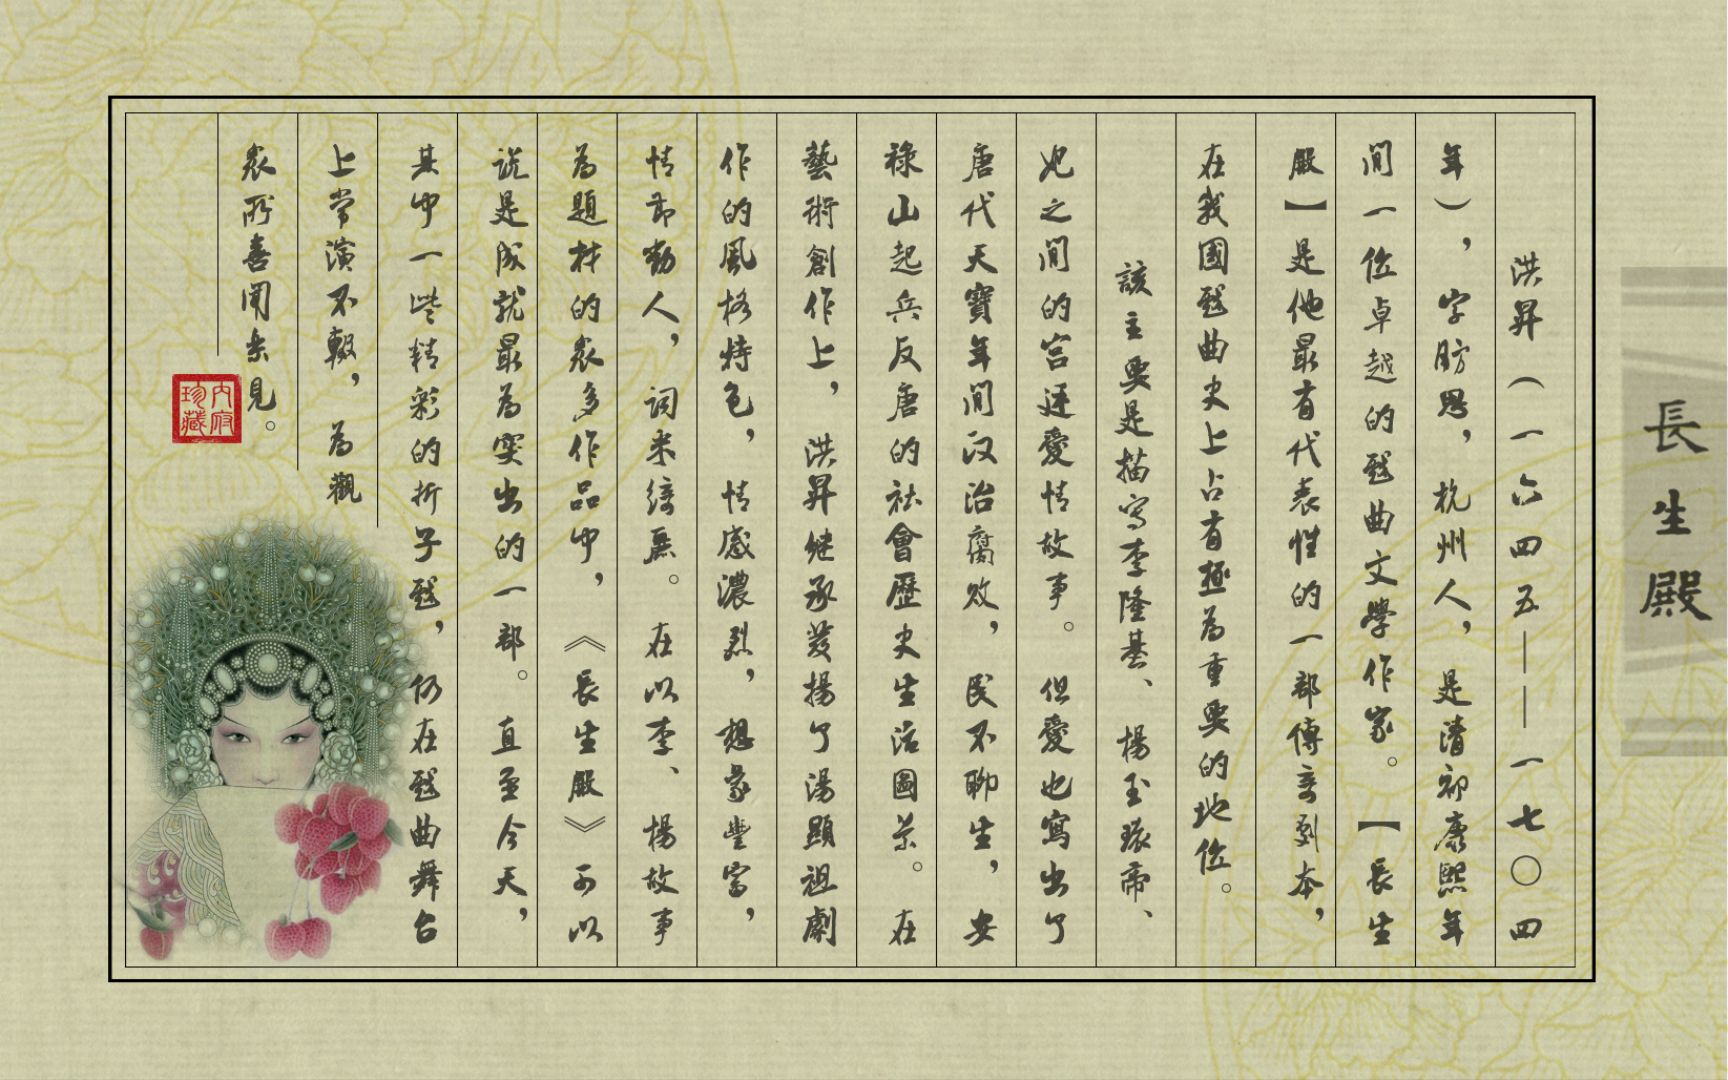 長生殿
洪昇（一六四五——一七〇四
年），字昉思，杭州人，是清初康熙年
间一位卓越的戲曲文學作家。【長生
殿】是他最有代表性的一部傳奇劇本，
在我國戲曲史上占有極為重要的地位。
該主要是描写李隆基、楊玉環帝、
妃之间的宫廷愛情故事。但愛也寫出了
唐代天寶年间政治腐败，民不聊生，安
祿山起兵反唐的社會歷史生活圖景。在
藝術創作上，洪昇继承发揚了湯顯祖劇
作的風格特色，情感濃烈，想象豐富，
情节動人，词采绮麗。在以李、楊故事
為題材的眾多作品中，《長生殿》可以
说是成就最為突出的一部。直至今天，
其中一些精彩的折子戲，仍在戲曲舞台
上常演不輟，為觀
眾所喜聞樂見。
内府
珍藏